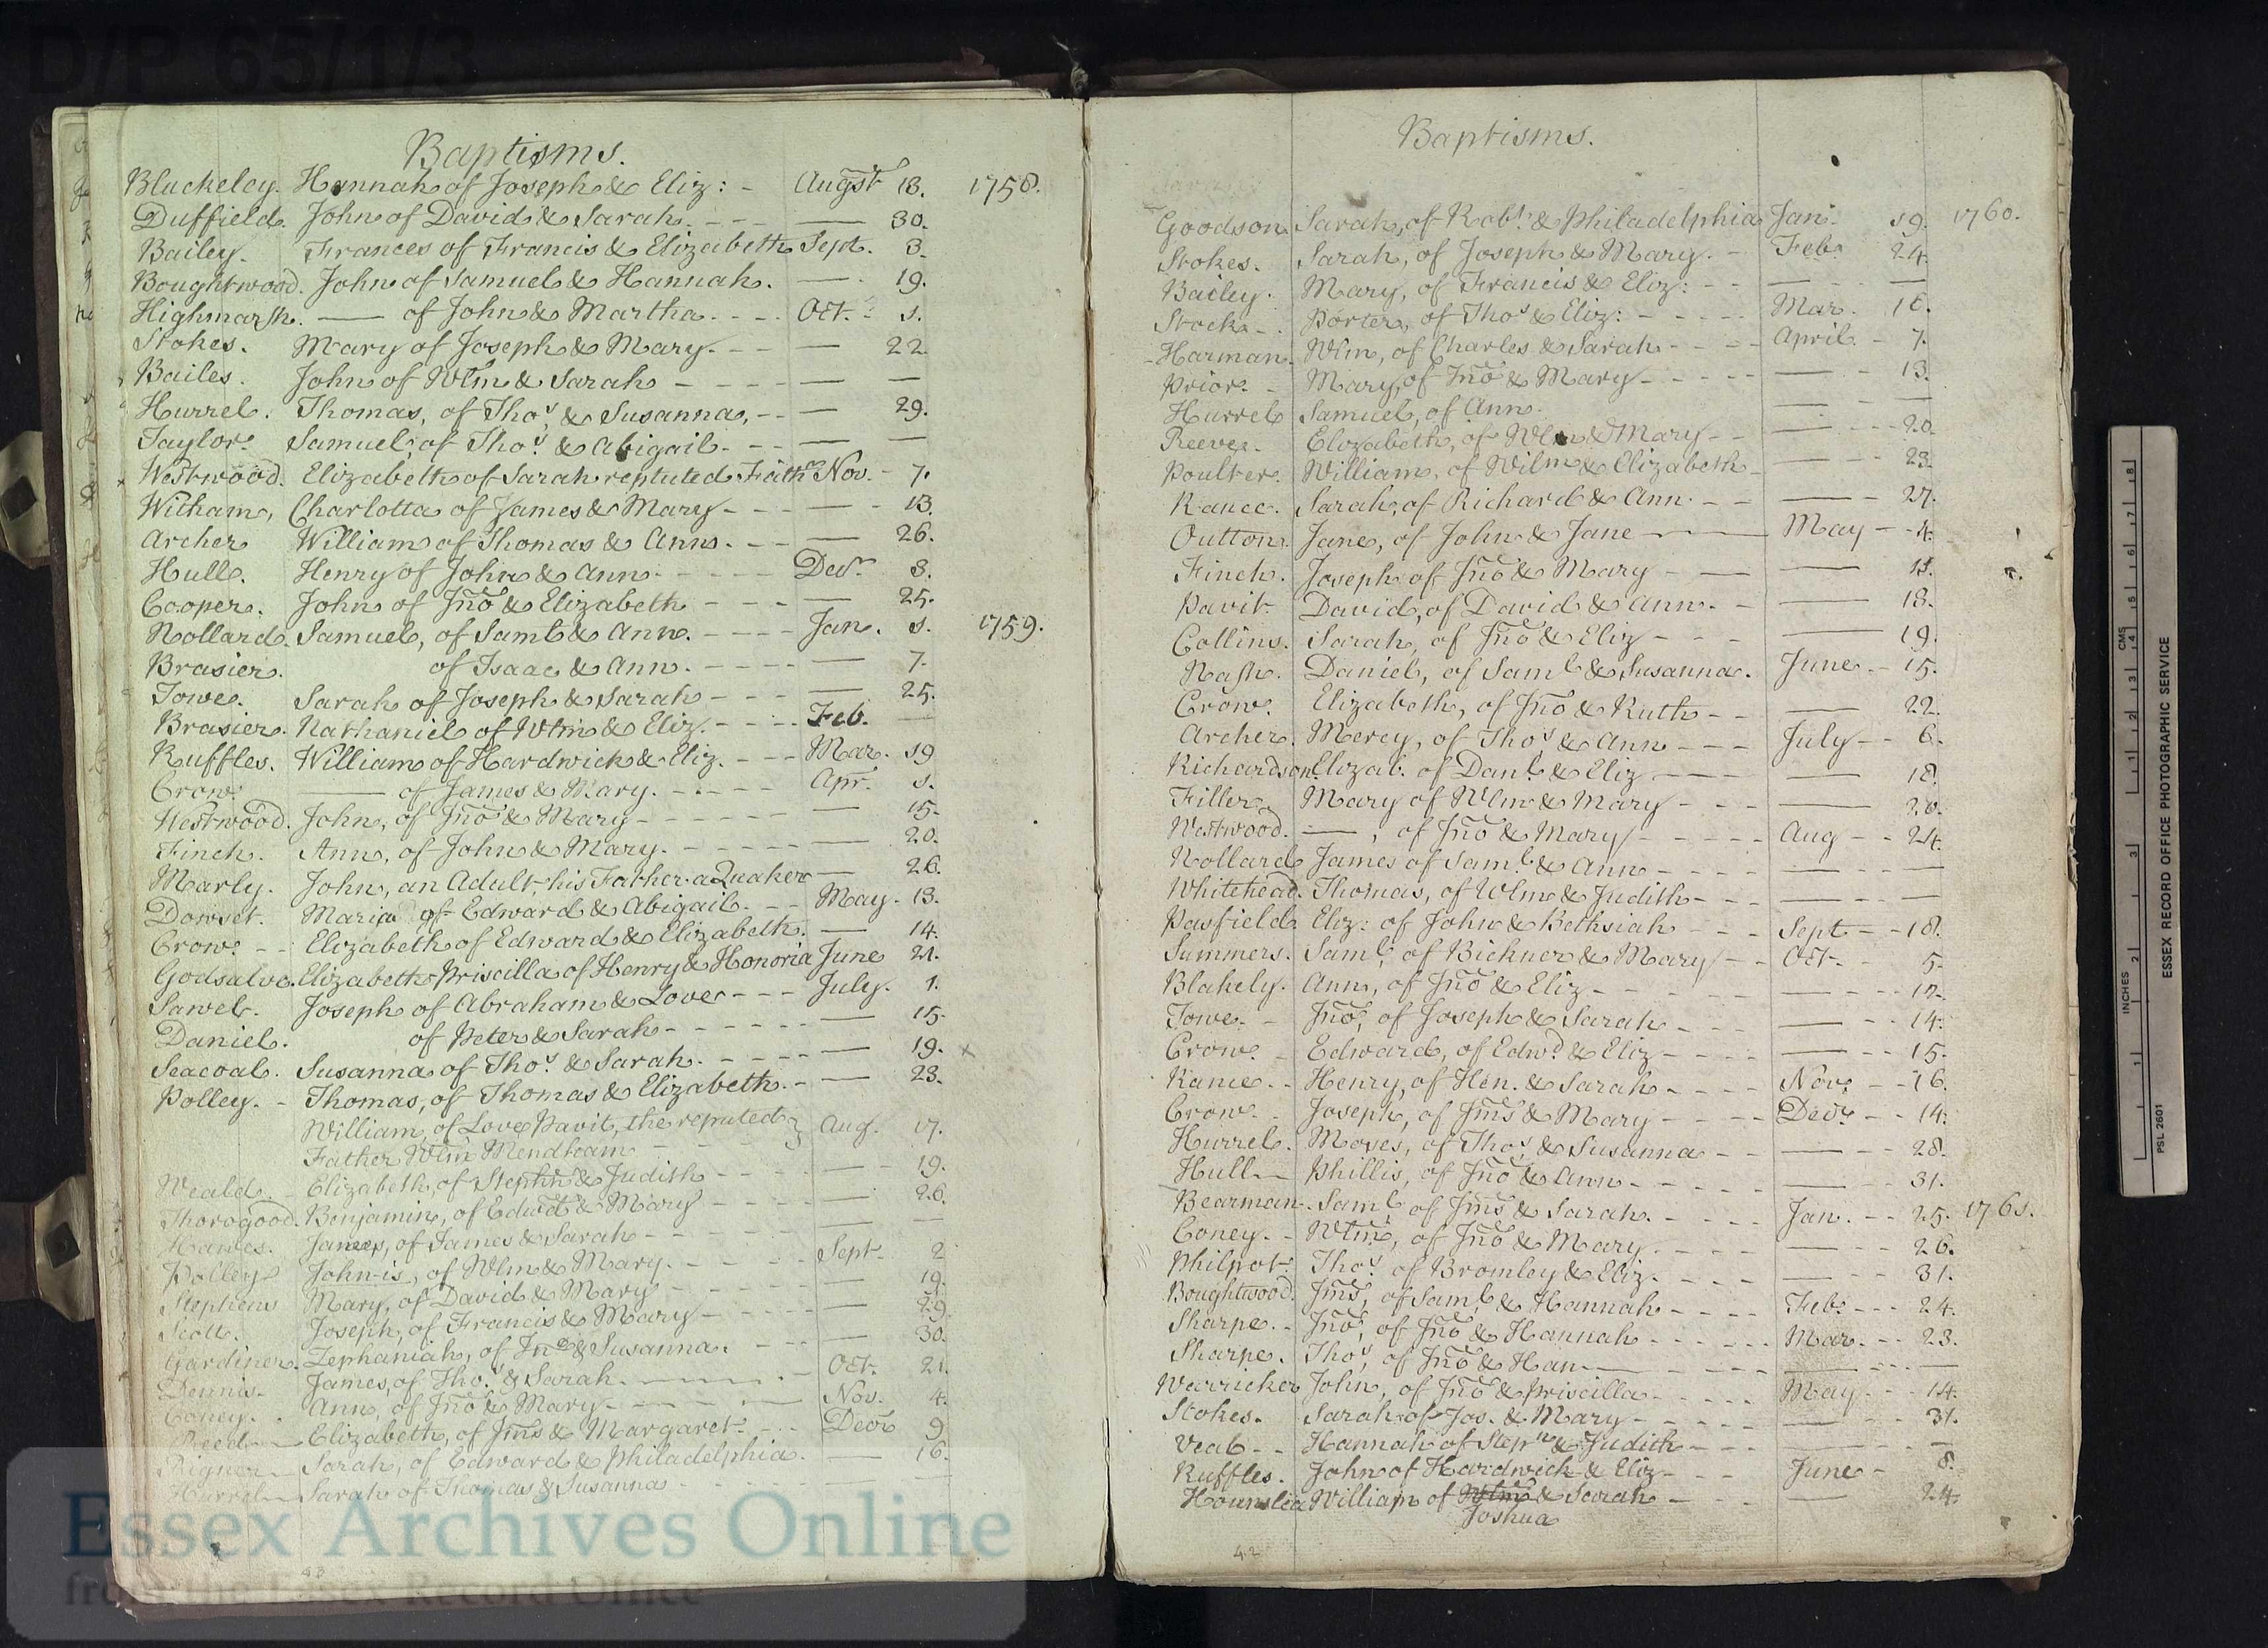 D/P 65/1/3
Baptisms.
Blackeley. Hannah of Joseph & Eliz: - Augst 13. 1758.
Duffield. John of David & Sarah. - - — 30.
Bailey. Frances of Francis & Elizabeth Sept. 3.
Boughtwood. John of Samuel & Hannah. — 19.
Highmarsh. — of John & Martha. - - - Oct. - 1.
Stokes. Mary of Joseph & Mary. - - — 22
Bailes. John of Wlm & Sarah - - - - — —
Hurrel. Thomas, of Thos. & Susanna, - - — 29.
Taylor. Samuel, of Thos. & Abigail. - - — —
Westwood. Elizabeth of Sarah reputed Fathr Nov. - 7.
Witham, Charlotta of James & Mary - - - — - 13.
Archer William of Thomas & Ann. - - — 26.
Hull. Henry of John & Ann. - - - - Decr. 3.
Cooper. John of Jno & Elizabeth - - - — 25.
Nollard. Samuel, of Saml & Ann. - - - - Jan. 1. 1759.
Brasier. of Isaac & Ann. - - - - - — 7.
Towe. Sarah of Joseph & Sarah - - - — 25.
Brasier. Nathaniel of Wlm & Eliz. - - - - Feb. —
Ruffles. William of Hardwick & Eliz. - - - Mar. 19
Crow. — of James & Mary. - - - - - Apr. 1.
Westwood. John, of Jno & Mary - - - - - - — 15.
Finch. Ann, of John & Mary. - - - - - - — 20.
Marly. John, an Adult, his Father a Quaker — 26.
Dowset. Maria of Edward & Abigail. - - - May. 13.
Crow. - - Elizabeth of Edward & Elizabeth. — 14.
Godsalve. Elizabeth Priscilla of Henry & Honoria June 21.
Sawel. Joseph of Abraham & Love - - - July. 1.
Daniel. of Peter & Sarah - - - - - - — 15.
Seacoal. Susanna of Thos. & Sarah. - - - - — 19. x
Polley. - Thomas, of Thomas & Elizabeth. - - — 23.
William, of Love Pavit, the reputed } Aug. 17.
Father Wlm Mendham
Weald. - Elizabeth, of Stephn & Judith - - - - — - 19.
Thorogood. Benjamin, of Edwd & Mary - - - - — 26.
Hawes. James, of James & Sarah - - - - - — —
Polley John-is, of Wlm & Mary. - - - - - Sept. 2
Stephens Mary, of David & Mary - - - - - — 19.
Scott. Joseph, of Francis & Mary - - - - - — 29.
Gardiner. Zephaniah, of Jno & Susanna. - - - — 30.
Dennis. James, of Thos. & Sarah. - - - - Oct. 21.
Coney. Ann, of Jno & Mary - - - - - Nov. 4.
Reed - Elizabeth, of Jms & Margaret. - - - Decr 9
Sarah, of Edward & Philadelphia. — 16.
Hurrel - Sarah of Thomas & Susanna - - - -
Baptisms.
Goodson Sarah, of Robt. & Philadelphia Jan. 19. 1760.
Stokes. Sarah, of Joseph & Mary. - Feb. 24.
Bailey. Mary, of Francis & Eliz: - - — —
Stock - . Porter, of Thos & Eliz: - - - - - Mar. 16.
Harman. Wlm, of Charles & Sarah - - - - April. - 7.
Prior. - Mary, of Jno & Mary - - - - - — - 13.
Hurrel Samuel, of Ann. — - —
Reeve. - Elizabeth, of Wlm & Mary - - — - - - 20.
Poulter. William, of Wilm & Elizabeth - — - - 23.
Rance. Sarah, of Richard & Ann. - - — - 27.
Outton. Jane, of John & Jane — May - - 4.
Finch. Joseph of Jno & Mary - — — 11.
Pavit. David, of David & Ann. - — 18.
Collins. Sarah, of Jno & Eliz - - - — 19.
Nash. Daniel, of Saml & Susanna. June. - 15.
Crow. Elizabeth, of Jno & Ruth - - — 22.
Archer. Mercy, of Thos & Ann - - - July - - 6.
Richardson. Elizab. of Danl. & Eliz — — 18.
Filler. Mary of Wlm & Mary - - - — 20.
Westwood. —, of Jno & Mary - - - - - Aug - - 24.
Nollard James of Saml. & Ann - - - - — —
Whitehead. Thomas, of Wlm & Judith - - - — - - —
Pasfield. Eliz: of John & Bethsiah - - - Sept - - 18.
Summers. Saml, of Bickner & Mary - - Oct. - 5.
Blakely. Ann, of Jno & Eliz - - - - - — - - - 12.
Towe. - Jno, of Joseph & Sarah - - - — - - 14.
Crow. - Edward, of Edwd & Eliz - - - - — - - 15.
Rance. - Henry, of Hen. & Sarah - - - - Nov. - - 16.
Crow. - Joseph, of Jms & Mary - - - - Decr. - - 14.
Hurrel. Moses, of Thos. & Susanna - - — - - 28.
Hull - Phillis, of Jno & Ann - - - - - — - - - 31.
Bearman. Saml of Jms & Sarah. - - - - Jan. - - 25. 1761.
Coney. - Wlm, of Jno & Mary. - - - - — - - - 26.
Philpot. Thos. of Bromley & Eliz. - - - - — - - 31.
Boughtwood. Jms, of Saml & Hannah - - - - Feb. - - - 24.
Sharpe. - Jno, of Jno & Hannah - - - - - Mar. - - 23.
Sharpe. Thos, of Jno & Han — - - - — - - - —
Warricker John, of Jno & Priscilla - - - - - May. - - 14.
Stokes. Sarah of Jos. & Mary - - - - - — - - - 31.
Veal - - Hannah of Stepn & Judith - - - — - - - —
Ruffles. John of Hardwick & Eliz - - - June - 8.
Hounslea William of Wlm & Sarah - — 24.
Joshua
42
INCHES
CMS
ESSEX RECORD OFFICE PHOTOGRAPHIC SERVICE
PSL 2601
Essex Archives Online
from the Essex Record Office